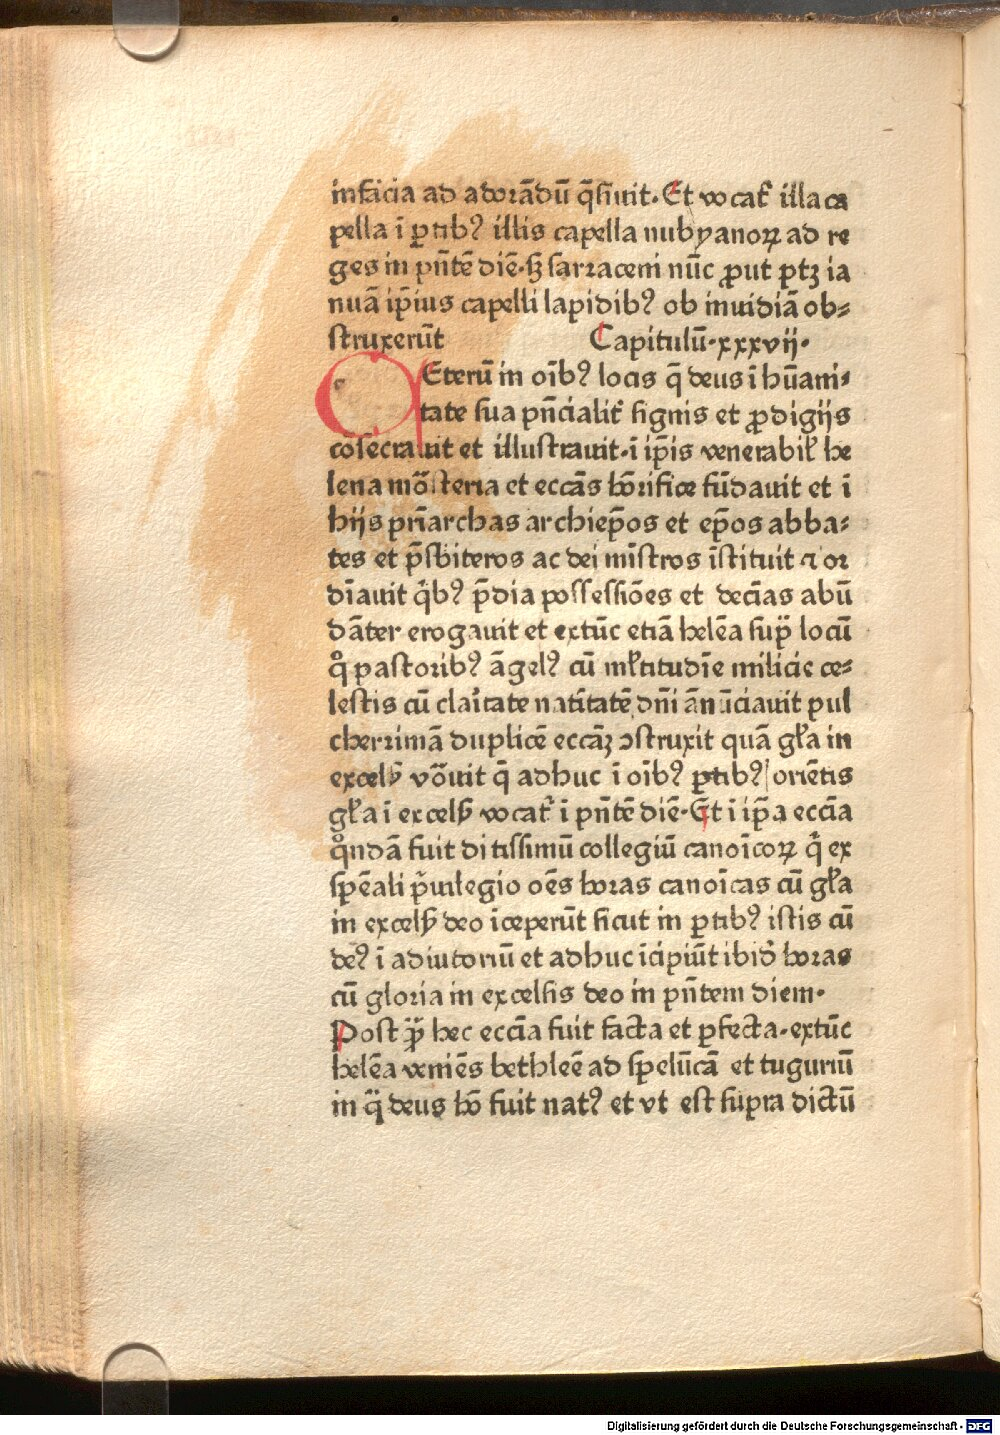 infācia ad adorādū q̄siuit. Et vocat᷑ illa ca
pella ī ꝑtibꝰ illis capella nubyanoꝝ ad re
ges in pn̄tē diē. sꝫ sarraceni nūc ꝓut ptꝫ ia
nuā ip̄ius capelli lapidibꝰ ob inuidiā ob⸗
struxerūt Capitulū.xxxvij.
CEterū in oīꝰ locis q̄ deus ī hūani⸗
tate sua pn̄cialit᷑ signis et ꝓdigijs
cōsecrauit et illustrauit. ī ip̄is venerabil̓ he
lena mōsteria et eccās hōrifice fūdauit et ī
hijs pr̄iarchas archiep̄os et ep̄os abba⸗
tes et p̄sbiteros ac dei mīstros īstituit ⁊ or
dīauit q̇bꝰ p̄dia possessiōes et decīas abū
dāter erogauit et extūc etiā helēa suꝑ locū
q̊ pastoribꝰ āgelꝰ cū ml̓titudīe milicie ce⸗
lestis cū clar̄itate natīitatē dn̄i ānūciauit pul
cherrimā duplicē eccāꝫ ↄstruxit quā gl̓a in
excelsꝭ vōuit q̄ adhuc ī oībꝰ ꝑtibꝰ oriētis
gl̓a ī excelsꝭ vocat᷑ ī pn̄tē diē. Et ī ip̄a eccīa
q̊ndā fuit ditissimū collegiū canoīcoꝝ q̇ ex
spēali p̄uilegio oēs horas canoīcas cū gl̓a
in excelsꝭ deo īceperūt sicut in ꝑtibꝰ istis cū
deꝰ ī adiutoriū et adhuc īcipiūt ibid̓ horas
cū gloria in excelsis deo in pn̄tem diem.
Postꝙ̄ hec eccīa fuit facta et ꝑfecta. extūc
helēa veniēs bethleē ad spelūcā et tuguriū
in q̄ deus hō fuit natꝰ et vt est supra dictū
Digitalisierung gefördert durch die Deutsche Forschungsgemeinschaft - DFG